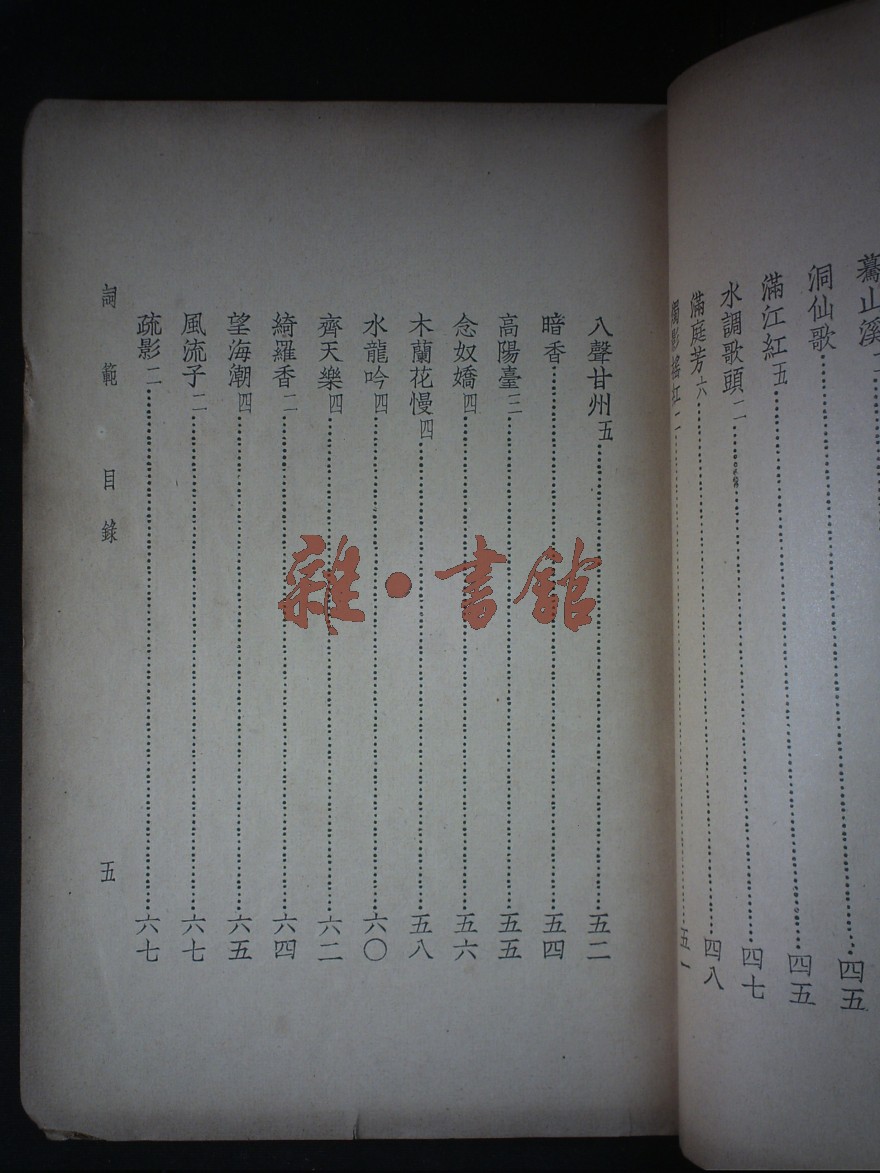 驀山溪
洞仙歌……四五
滿江紅五……四五
水調歌頭二……四七
滿庭芳六……四八
燭影搖紅二……五一
八聲甘州五……五二
暗香……五四
高陽臺三……五五
念奴嬌四……五六
木蘭花慢四……五八
水龍吟四……六〇
齊天樂四……六二
綺羅香二……六四
望海潮四……六五
風流子二……六七
疏影二……六七
詞範 目錄 五
雜·書館